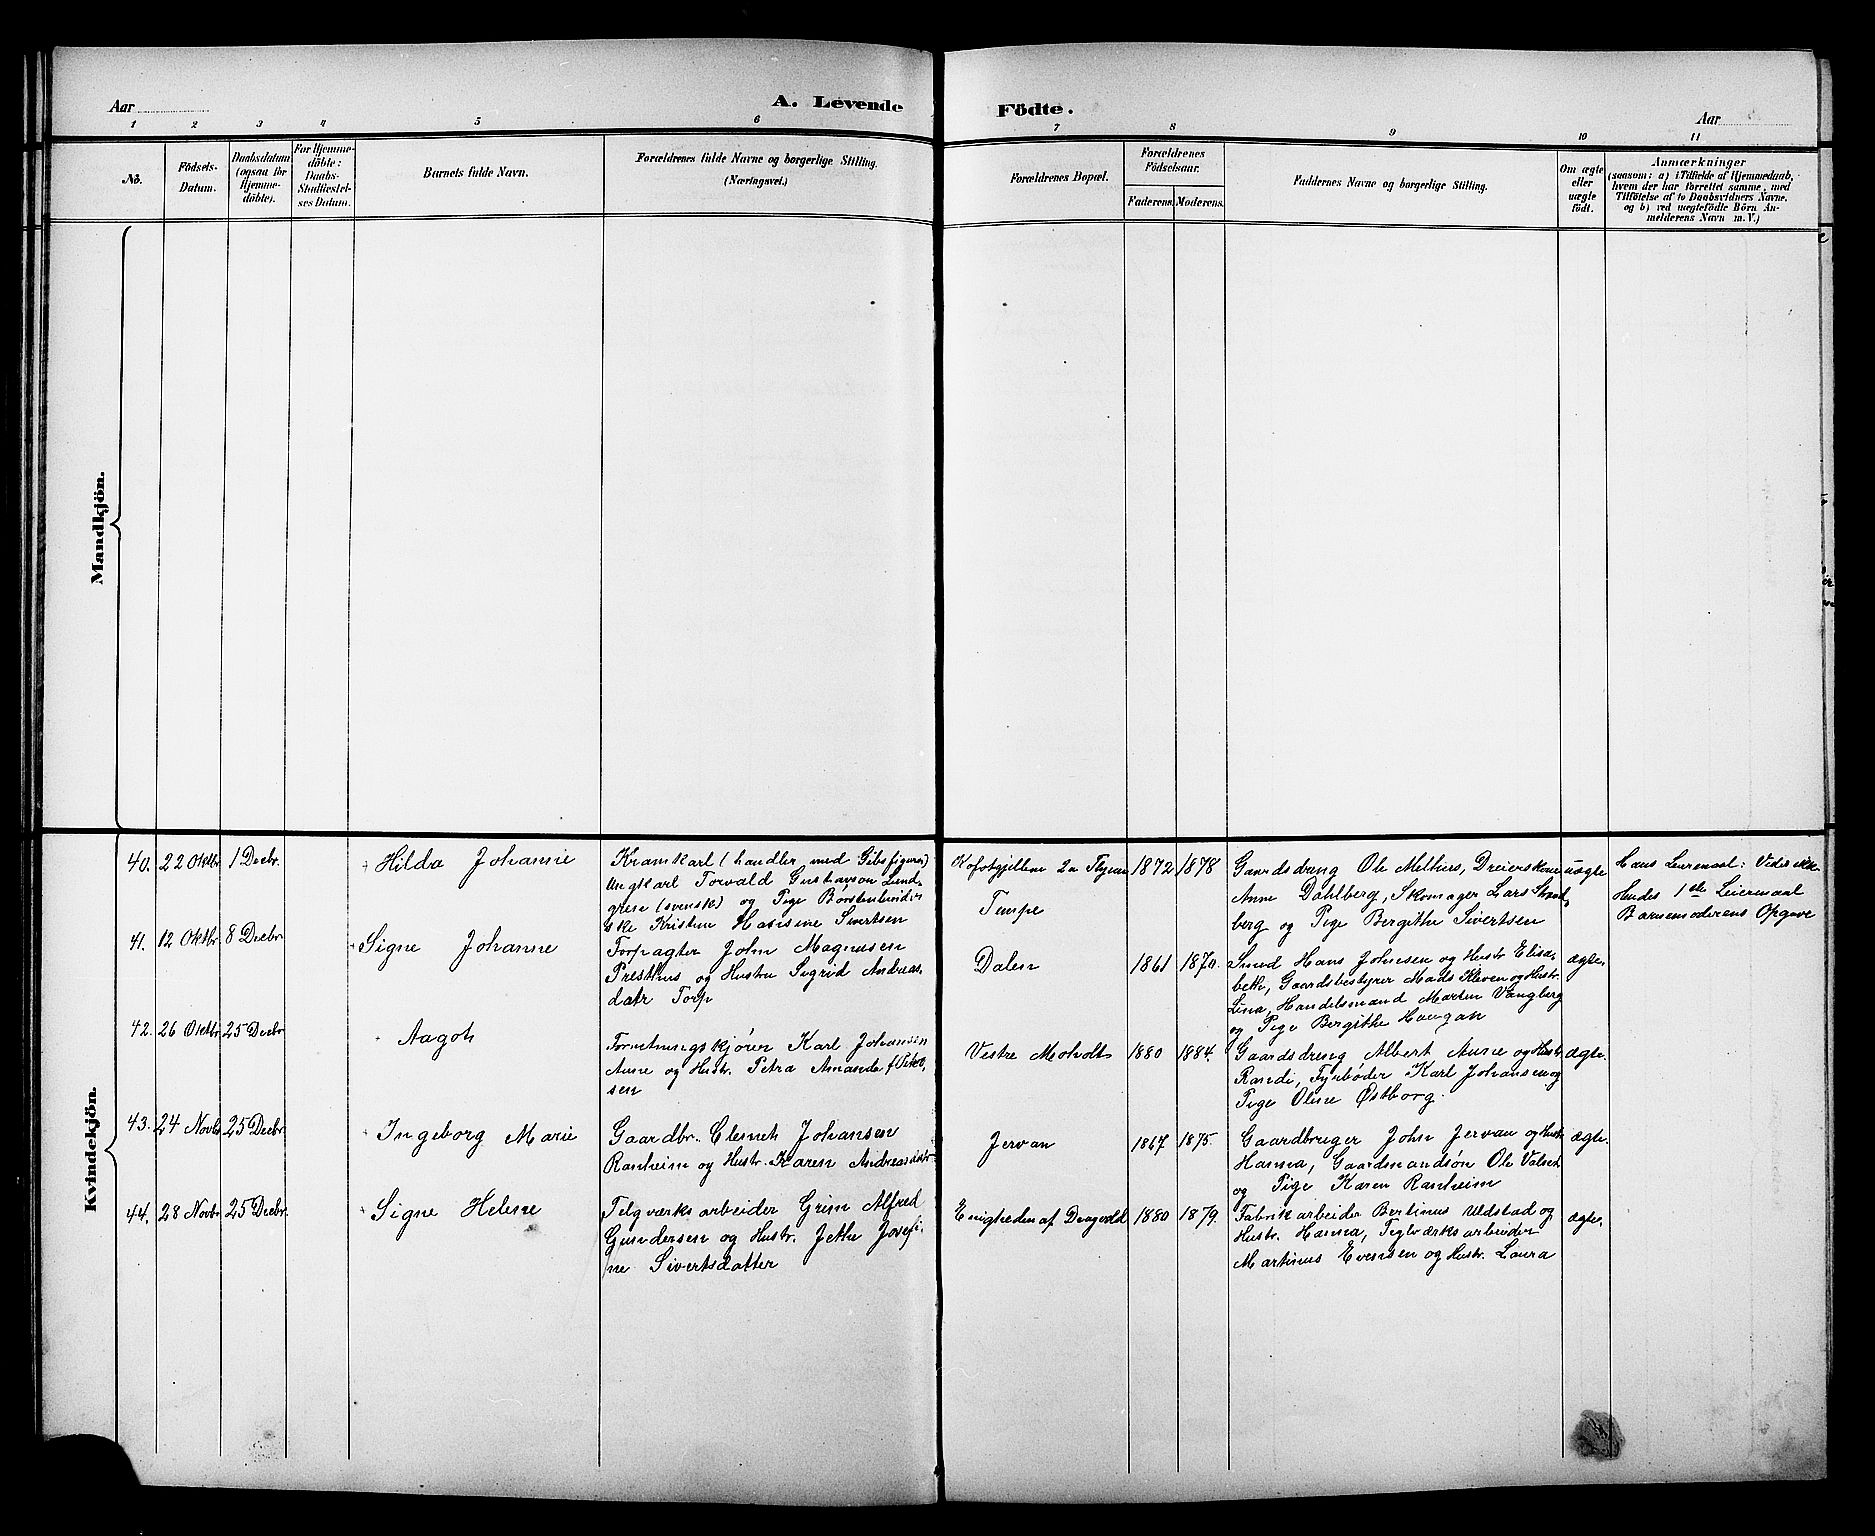 Aar
A. Levende
Födte.
Aar
1 2 3 4 5 6 7 8 9 10 11
No.
Födsels-
Datum.
Daabsdatum
(ogsaa for
Hjemme-
döbte).
For Hjemme-
döbte:
Daabs-
Stadfæstel-
ses Datum.
Barnets fulde Navn.
Forældrenes fulde Navne og borgerlige Stilling.
(Næringsvei.)
Forældrenes Bopæl.
Forældrenes
Födselsaar.
Faderens.
Moderens.
Faddernes Navne og borgerlige Stilling.
Om ægte
eller
uægte
födt.
Anmærkninger
(saasom: a) i Tilfælde af Hjemmedaab,
hvem der har forrettet samme, med
Tilföielse af to Daabsvidners Navne,
og b) ved uægtefödte Börn An-
melderens Navn m. V.)
Mandkjön.
Kvindekjön.
40. 22 Oktbr 1 Decbr. Hilda Johanne
Kramkarl (handler med Gibsfigurer)
Ungkarl Torvald Gustavson Lund-
gren (svensk) og Pige Børstenbinder-
ske Kristine Hansine Sivertsen
Tempe
1872 1878
Gaardsdreng Ole Melhus, Dreierskone
Anne Dahlberg, Skomager Lars Strand-
berg og Pige Bergithe Sivertsen
uægte
Hans Leiermaal: Vides ikke
Hendes 1ste Leiermaal
Barnemoderens Opgave
41. 12 Oktbr 8 Decbr Signe Johanne
Forpagter John Magnusen
Presthus og Hustru Sigrid Andreas-
datr Torp
Dalen
1861 1870.
Smed Hans Johnsen og Hustr Elisa-
beth, Gaardsbestyrer Mads Kleven og Hustr.
Lina, Handelsmand Morten Vangberg
og Pige Bergithe Haugan
ægte.
42. 26 Oktbr 25 Decbr Aagot
Forretningskjører Karl Johansen
Aune og Hustr. Petra Amanda f.
sen
Vestre Moholt
1880 1884.
Gaardsdreng Albert Aune og Hustr.
Randi, Fyrbøder Karl Johansen og
Pige Oline Østborg.
ægte.
43. 24 Novbr 25 Decbr Ingeborg Marie
Gaardbr. Clemet Johansen
Ranheim og Hustr. Karen Andreasdatr
Jervan
1867 1875.
Gaardbruger John Jervan og Hustr
Hanna, Gaardmandsøn Ole Valset
og Pige Karen Ranheim
ægte.
44. 28 Novbr 25 Decbr. Signe Helene
Telgværksarbeider Grim Alfred
Gundersen og Hustr. Jethe Josefi-
ne Sivertsdatter
Enigheden af Dragvold
1880 1879.
Fabrikarbeider Bertinus Udstad og
Hustr. Hanna, Teglværksarbeider
Martinus Evensen og Hustr. Laura
ægte.